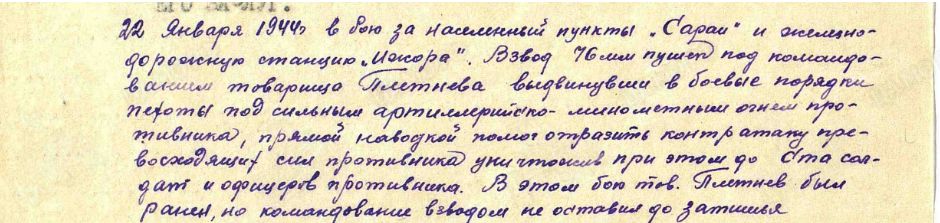 22 Января 1944г в бою за населенный пункты „Сараи" и железно-
дорожную станцию „Ижора". Взвод 76мм пушек под командо-
ванием товарища Плетнева выдвинувши в боевые порядки
пехоты под сильным артиллерийско-минометным огнем про-
тивника, прямой наводкой помог отразить контратаку пре-
восходящих сил противника уничтожив при этом до ста сол-
дат и офицеров противника. В этом бою тов. Плетнев был
ранен, но командование взводом не оставил до затишья